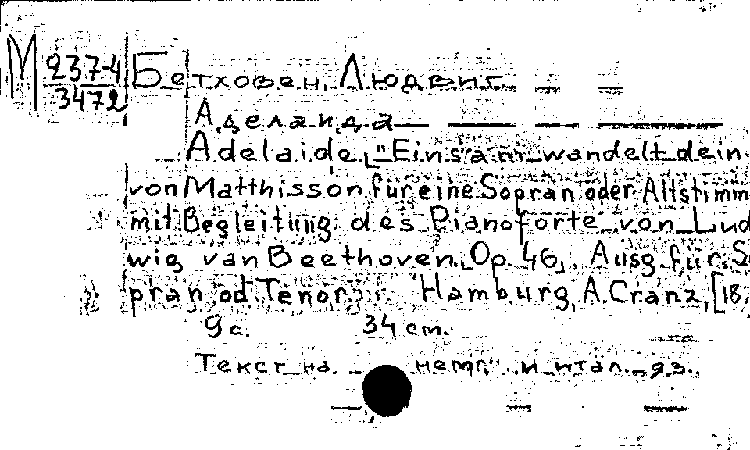 М 237-4
3472
Бетховен, Людвиг.
Аделаида
Adelaide, "Einsam wandelt dein
von Matthisson für eine Sopran oder Altstimm
mit Begleitung des Pianoforte von Lud
wig van Beethoven, Op. 46, Ausg. für. So
pran od. Tenor. Hamburg, A. Cranz, [18
9 с. 34 cm.
Текст на нем. и итал. яз.